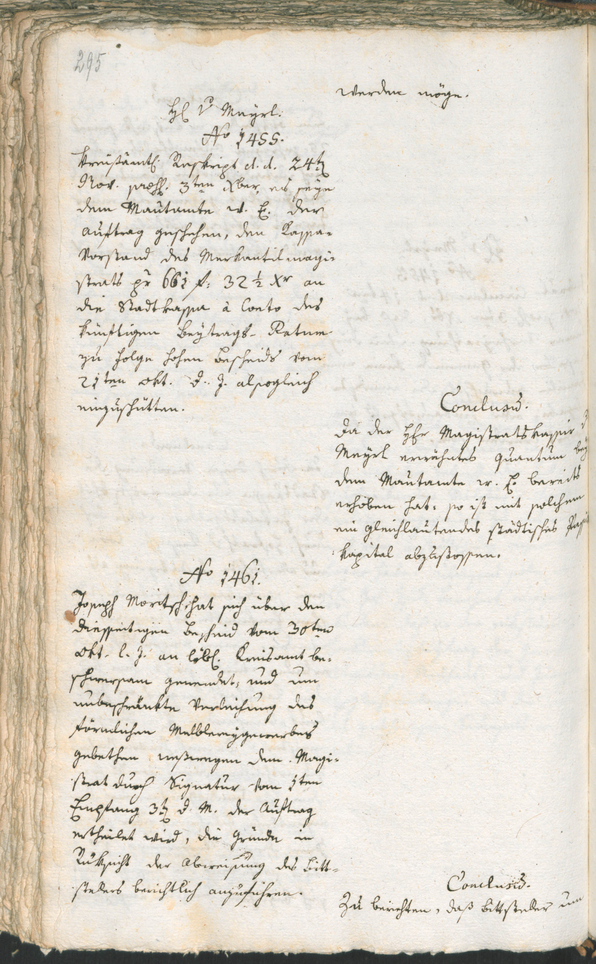 295
werden möge.
H. v. Mayrl.
No 1455.
Kreisämtl. Reskript d. d. 24t
Nov. präs. 3ten Xber, es seye
dem Mautamte w. E. der
Auftrag geschehen, den Kassa-
Vorstand des Merkantilmagi-
strats pr 661 f: 32 1/2 Xr an
die Stadtkassa à Conto des
künftigen Beytrags-
zu Folge hohen Bescheids vom
21ten Okt. d. J. alsogleich
einzuschütten.
Conclusũ.
Da der Hr Magistratskassier
Mayrl erwehntes Quantum bey
dem Mautamte w. E. bereits
erhoben hat: so ist mit solchem
ein gleichlautendes städtisches
Kapital abzustossen.
No 1461.
Joseph Moritsch hat sich über den
diesseitigen Bescheid vom 30ten
Okt. l. J. an löbl. Kreisamt be-
schwersam gewendet, und um
unbeschränkte Verleihung des
förmlichen Melblerygewerbes
gebethen weßwegen dem Magi-
strat durch Signatur vom 1ten
Empfang 3t d. M. der Auftrag
ertheilet wird, die Gründe in
Rüksicht der Abweisung des Bitt-
stellers berichtlich anzuführen.
Conclusũ.
Zu berichten, daß Bittsteller um